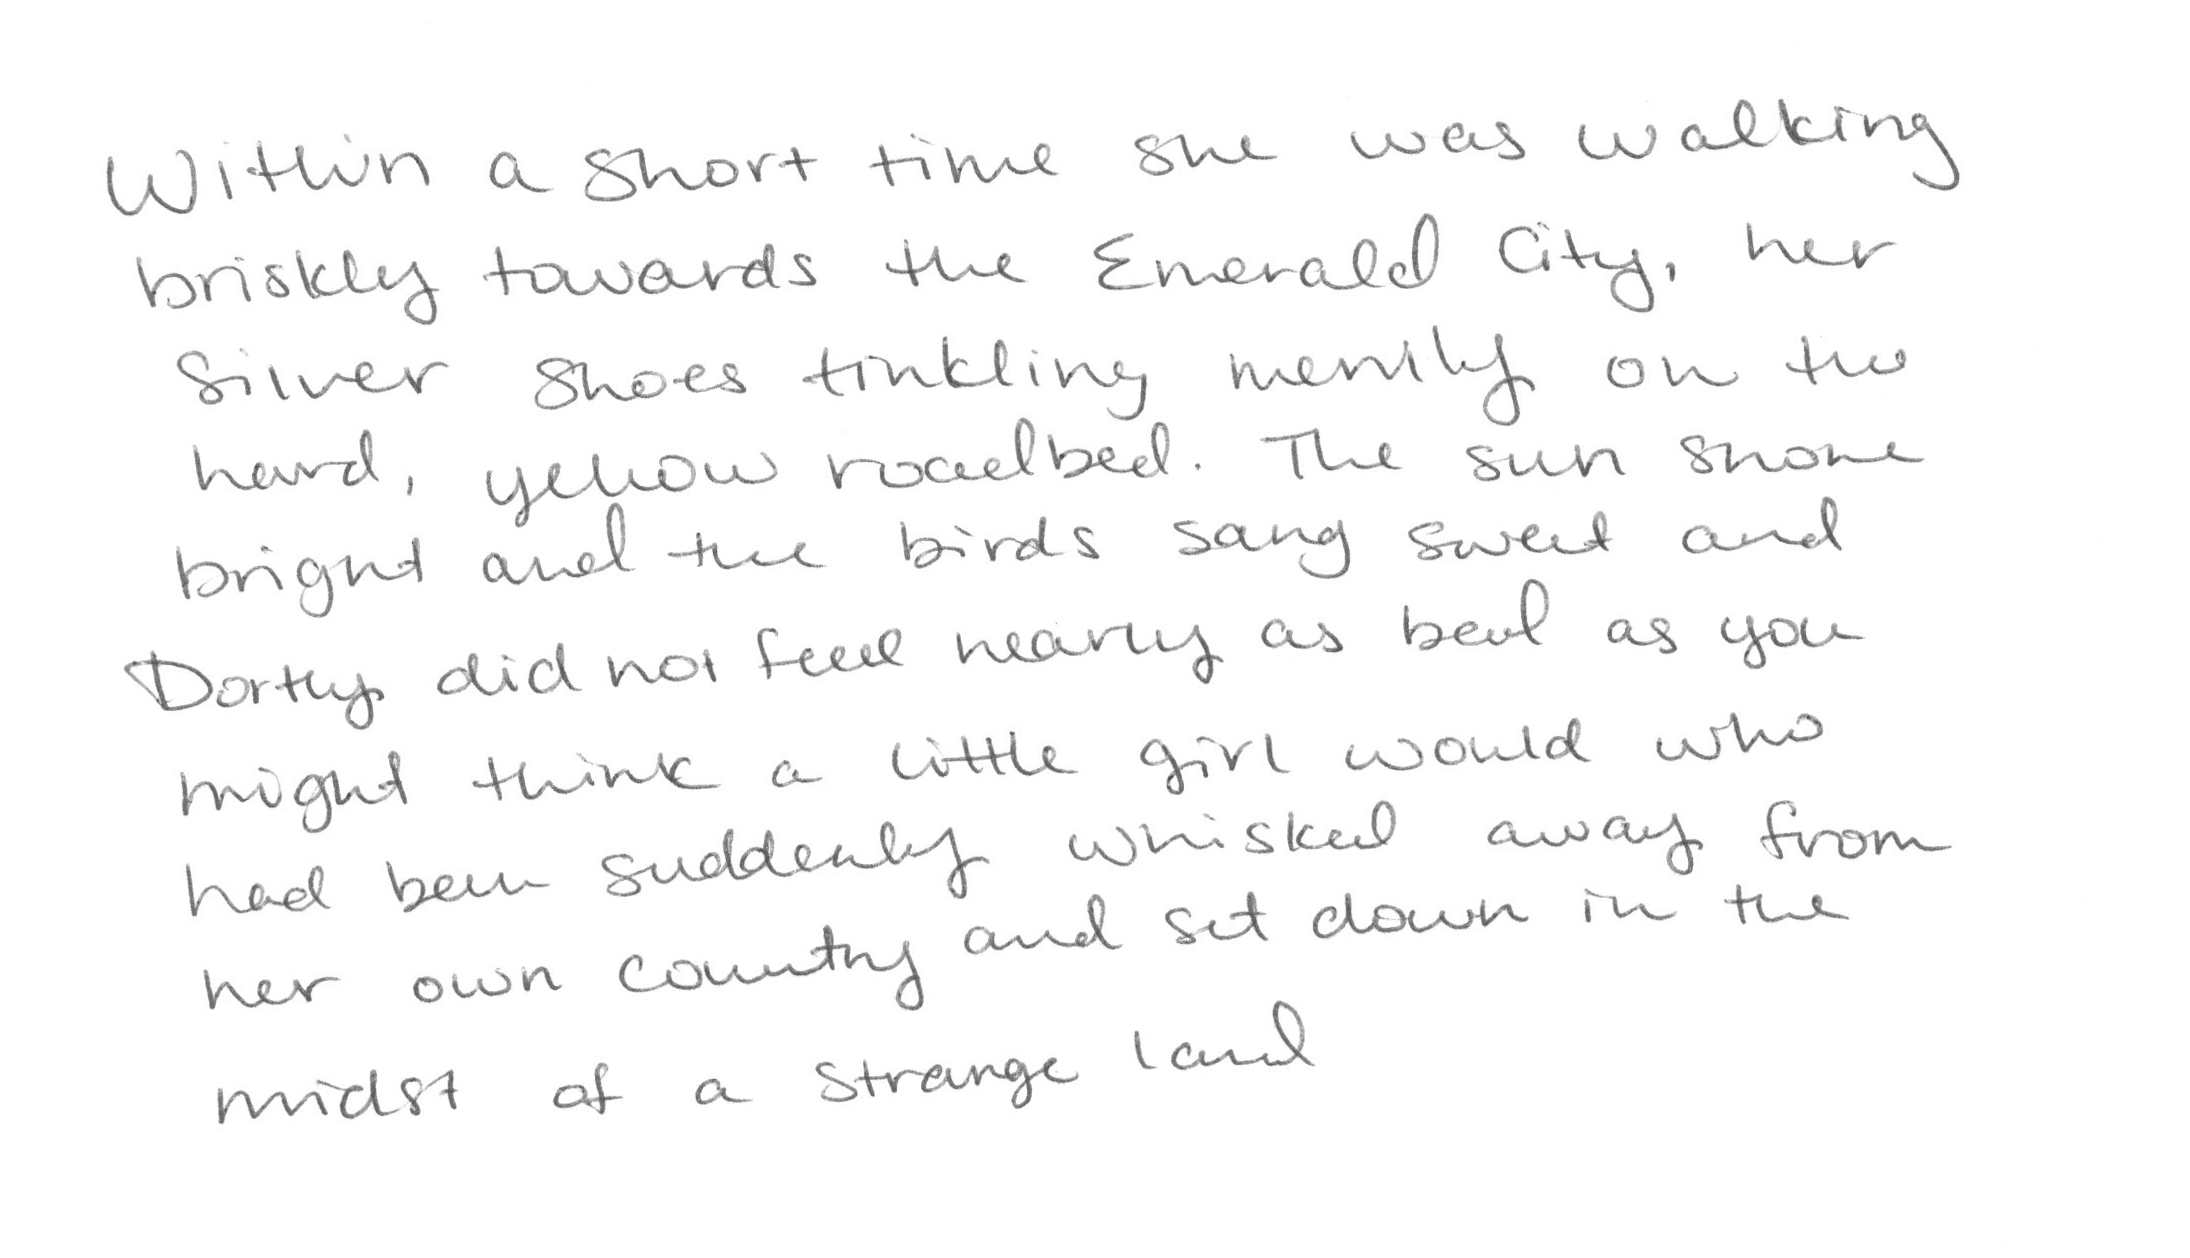 Within a short time she was walking
briskly towards the Emerald City, her
Silver Shoes tinkling merrily on the
hard, yellow roadbed. The sun shone
bright and the birds sang sweet and
Dorthy did not feel nearly as bad as you
might think a little girl would who
had been suddenly whisked away from
her own country and set down in the
midst of a strange land